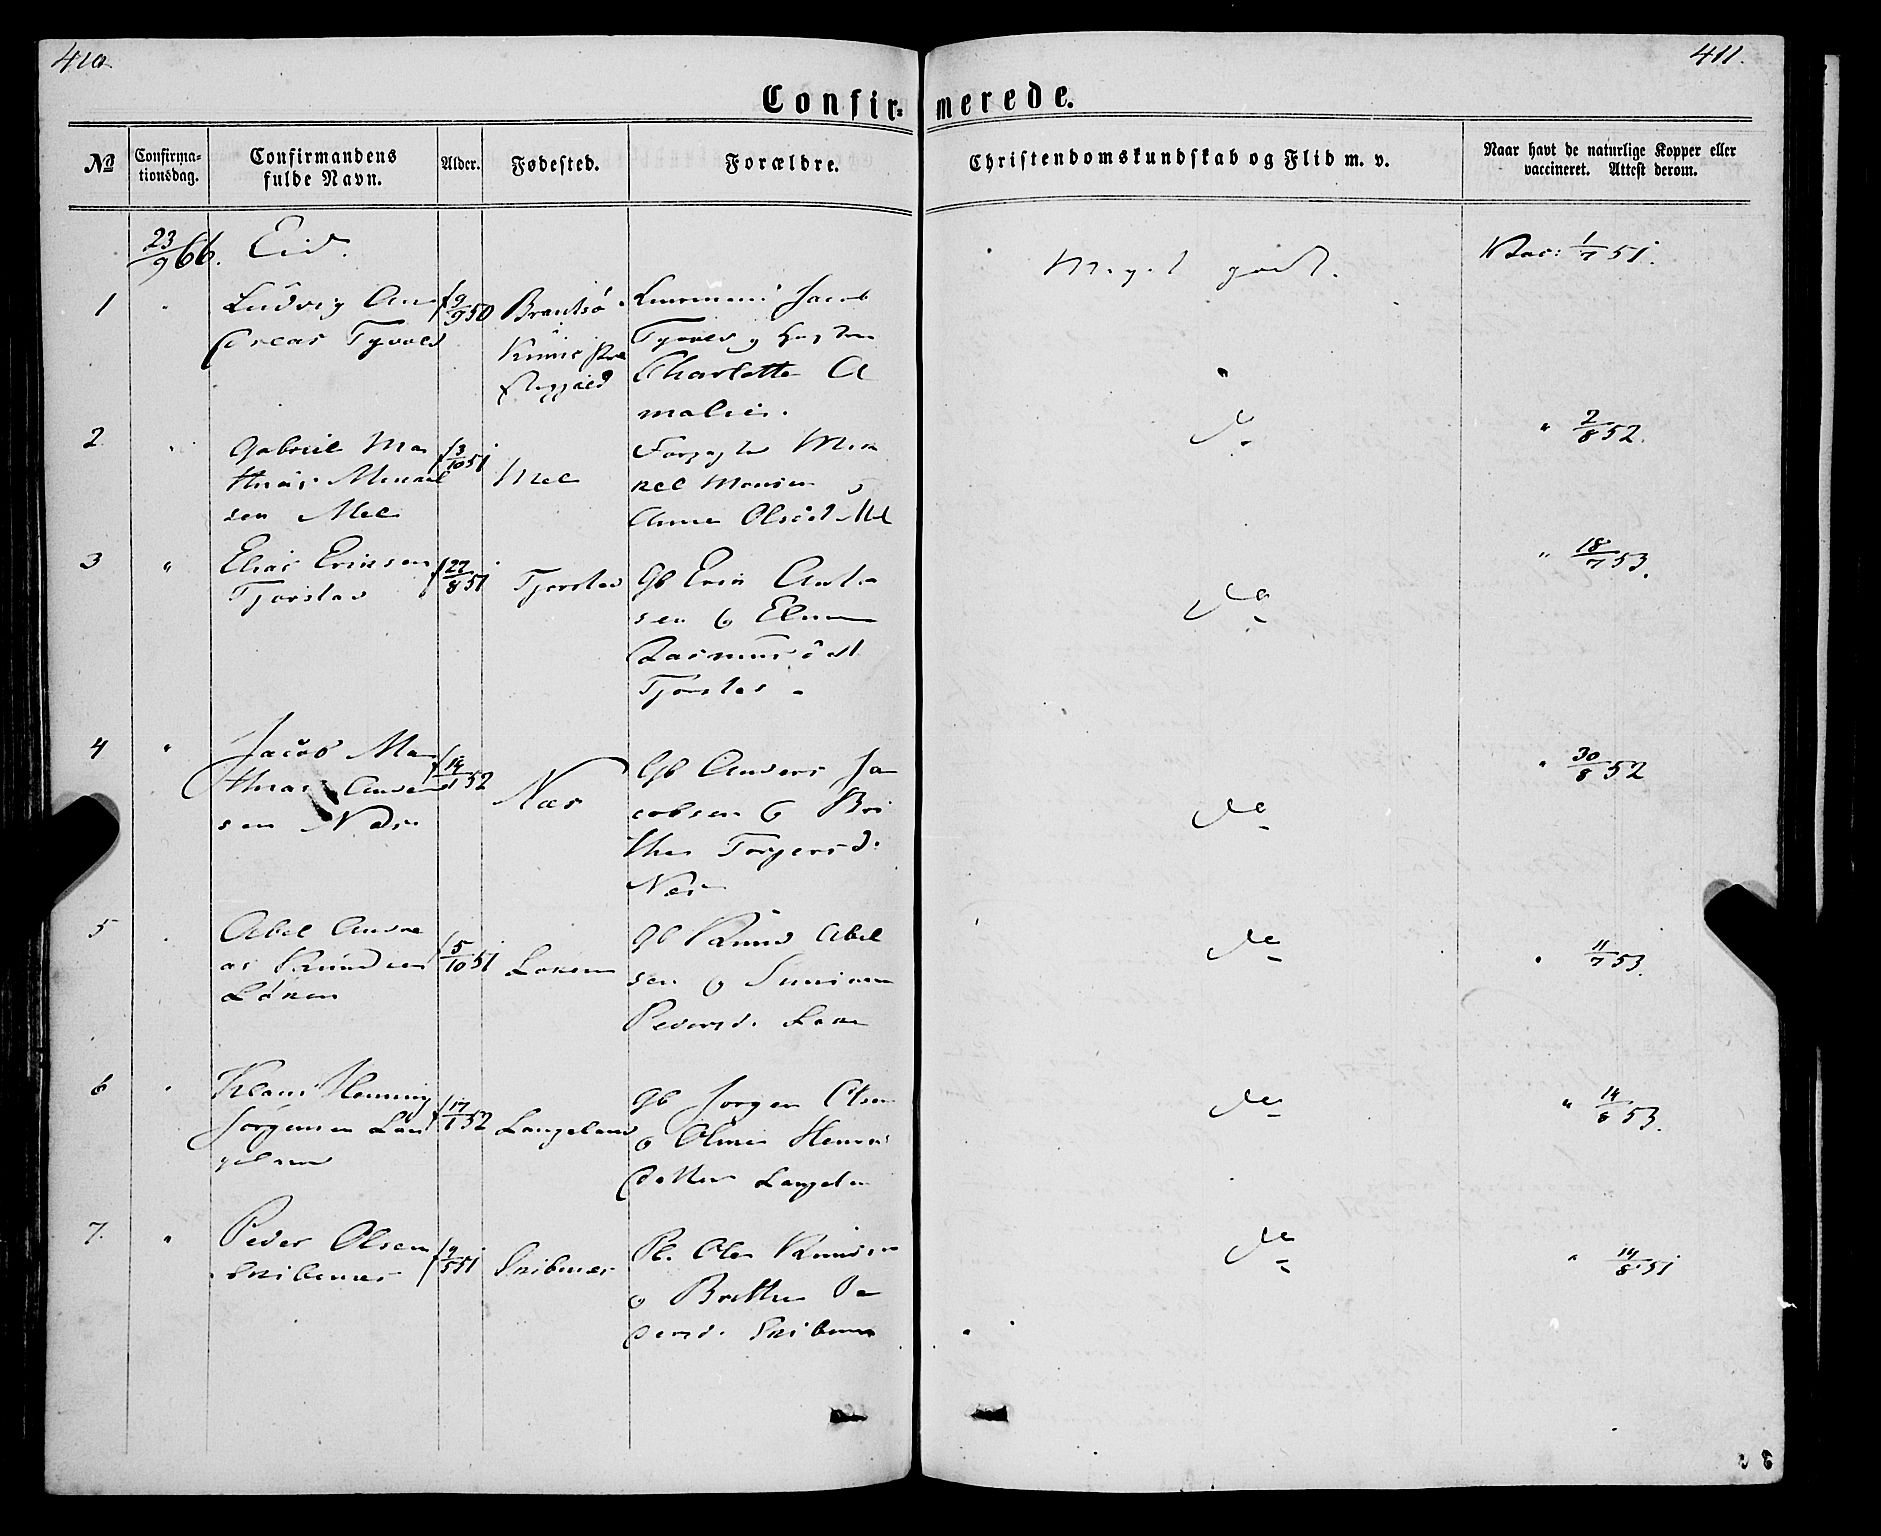 410.
411.
Confir-
merede.
No
Confirma-
tionsdag.
Confirmandens
fulde Navn.
Alder.
Fødested.
Forældre.
Christendomskundskab og Flid m. v.
Naar havt de naturlige Kopper eller
vaccineret. Attest derom.
23/9 66. Eid.
Meget godt.
Vac: 1/7 51.
1 " Ludvig An
dreas Tyvold
f 9/9 50
Jacob
Tyvold og Hustru
Charlotte A
malie.
2 " Gabriel Ma
thias Mikkel
sen Mel
f 3/10 51
Mel
Forpagter Mik
kel Monsen
Anne Olsdt Mel
Do
" 2/8 52.
3 " Elias Eriksen
Tjorstad
f 22/8 51
Tjorstad
Gb Erik Anta
sen o Elen
Rasmusdt
Tjorstad
Do
" 18/7 53.
4 " Jacob Ma
thias Anders
sen Næs
f 14/1 52
Næs
Gb Anders Ja
cobsen o Bri
the Torgersd.
Næs
Do
" 30/8 52
5 " Abel Andre
as Knudsen
Løken
f 5/10 51
Loken
Gb Knud Abel
sen o Sunniva
Pedersd. Loken
Do
" 11/7 53.
6 " Klaus Henning
Jørgensen Lan
geland
f 17/1 52
Langeland
Gb Jørgen Olsen
o Oline Henriks
datter Langeland
Do
" 14/8 53.
7. " Peder Olsen
Skibenes
f 9/5 51
Skibenes
Pl. Ole Knudsen
o Brithe Pe
dersd. Skibenes
Do
" 14/8 51